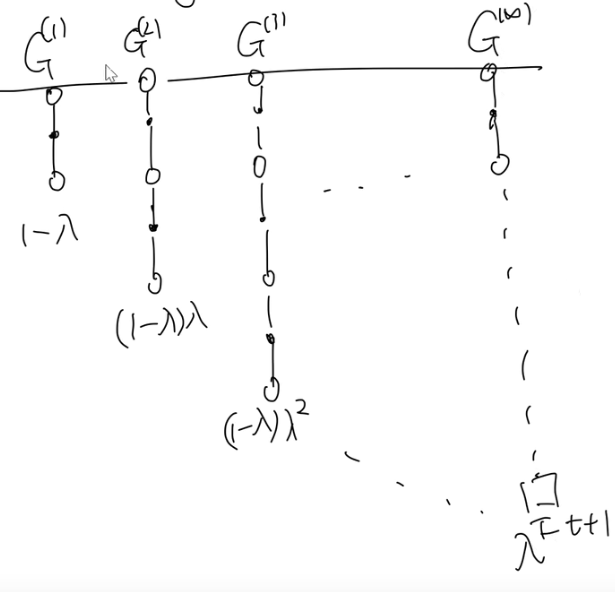 G^(1) G^(2) G^(3) G^(∞)
1-λ
(1-λ)λ
(1-λ)λ^2
λ^T-t+1